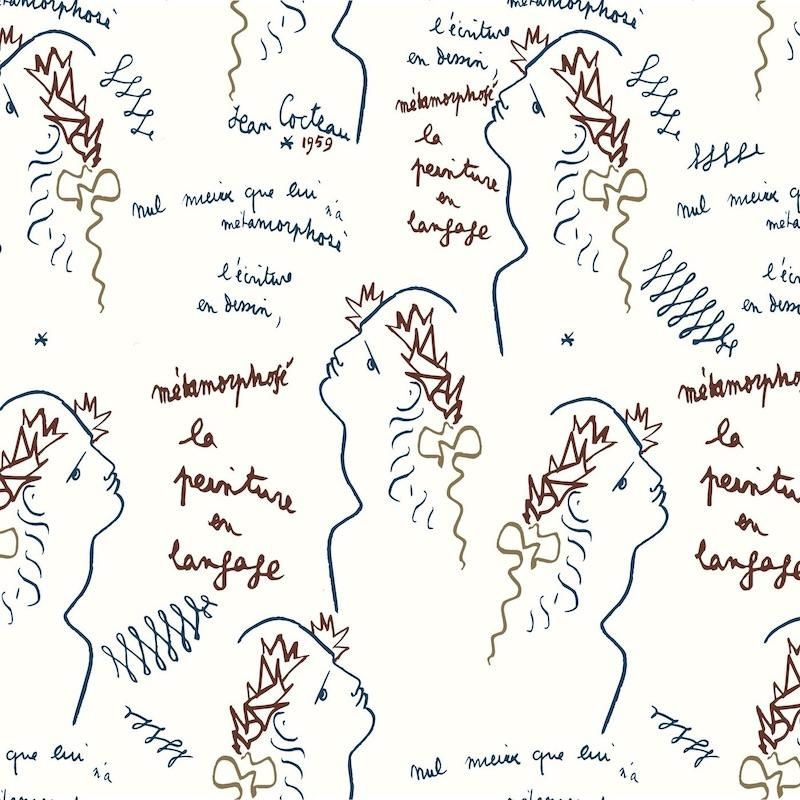 métamorphosé
l'écriture
en dessin,
métamorphosé
la
peinture
en
langage
Jean Cocteau
* 1959
nul mieux que lui
n'a
métamorphosé
l'écriture
en dessin,
*
nul mieux q
méta
l'éc
en dessin,
*
métamorphosé
la
peinture
en
langage
métamorpho
la
peinture
en
langage
que lui
n'a
nul mieux que lui
n'a